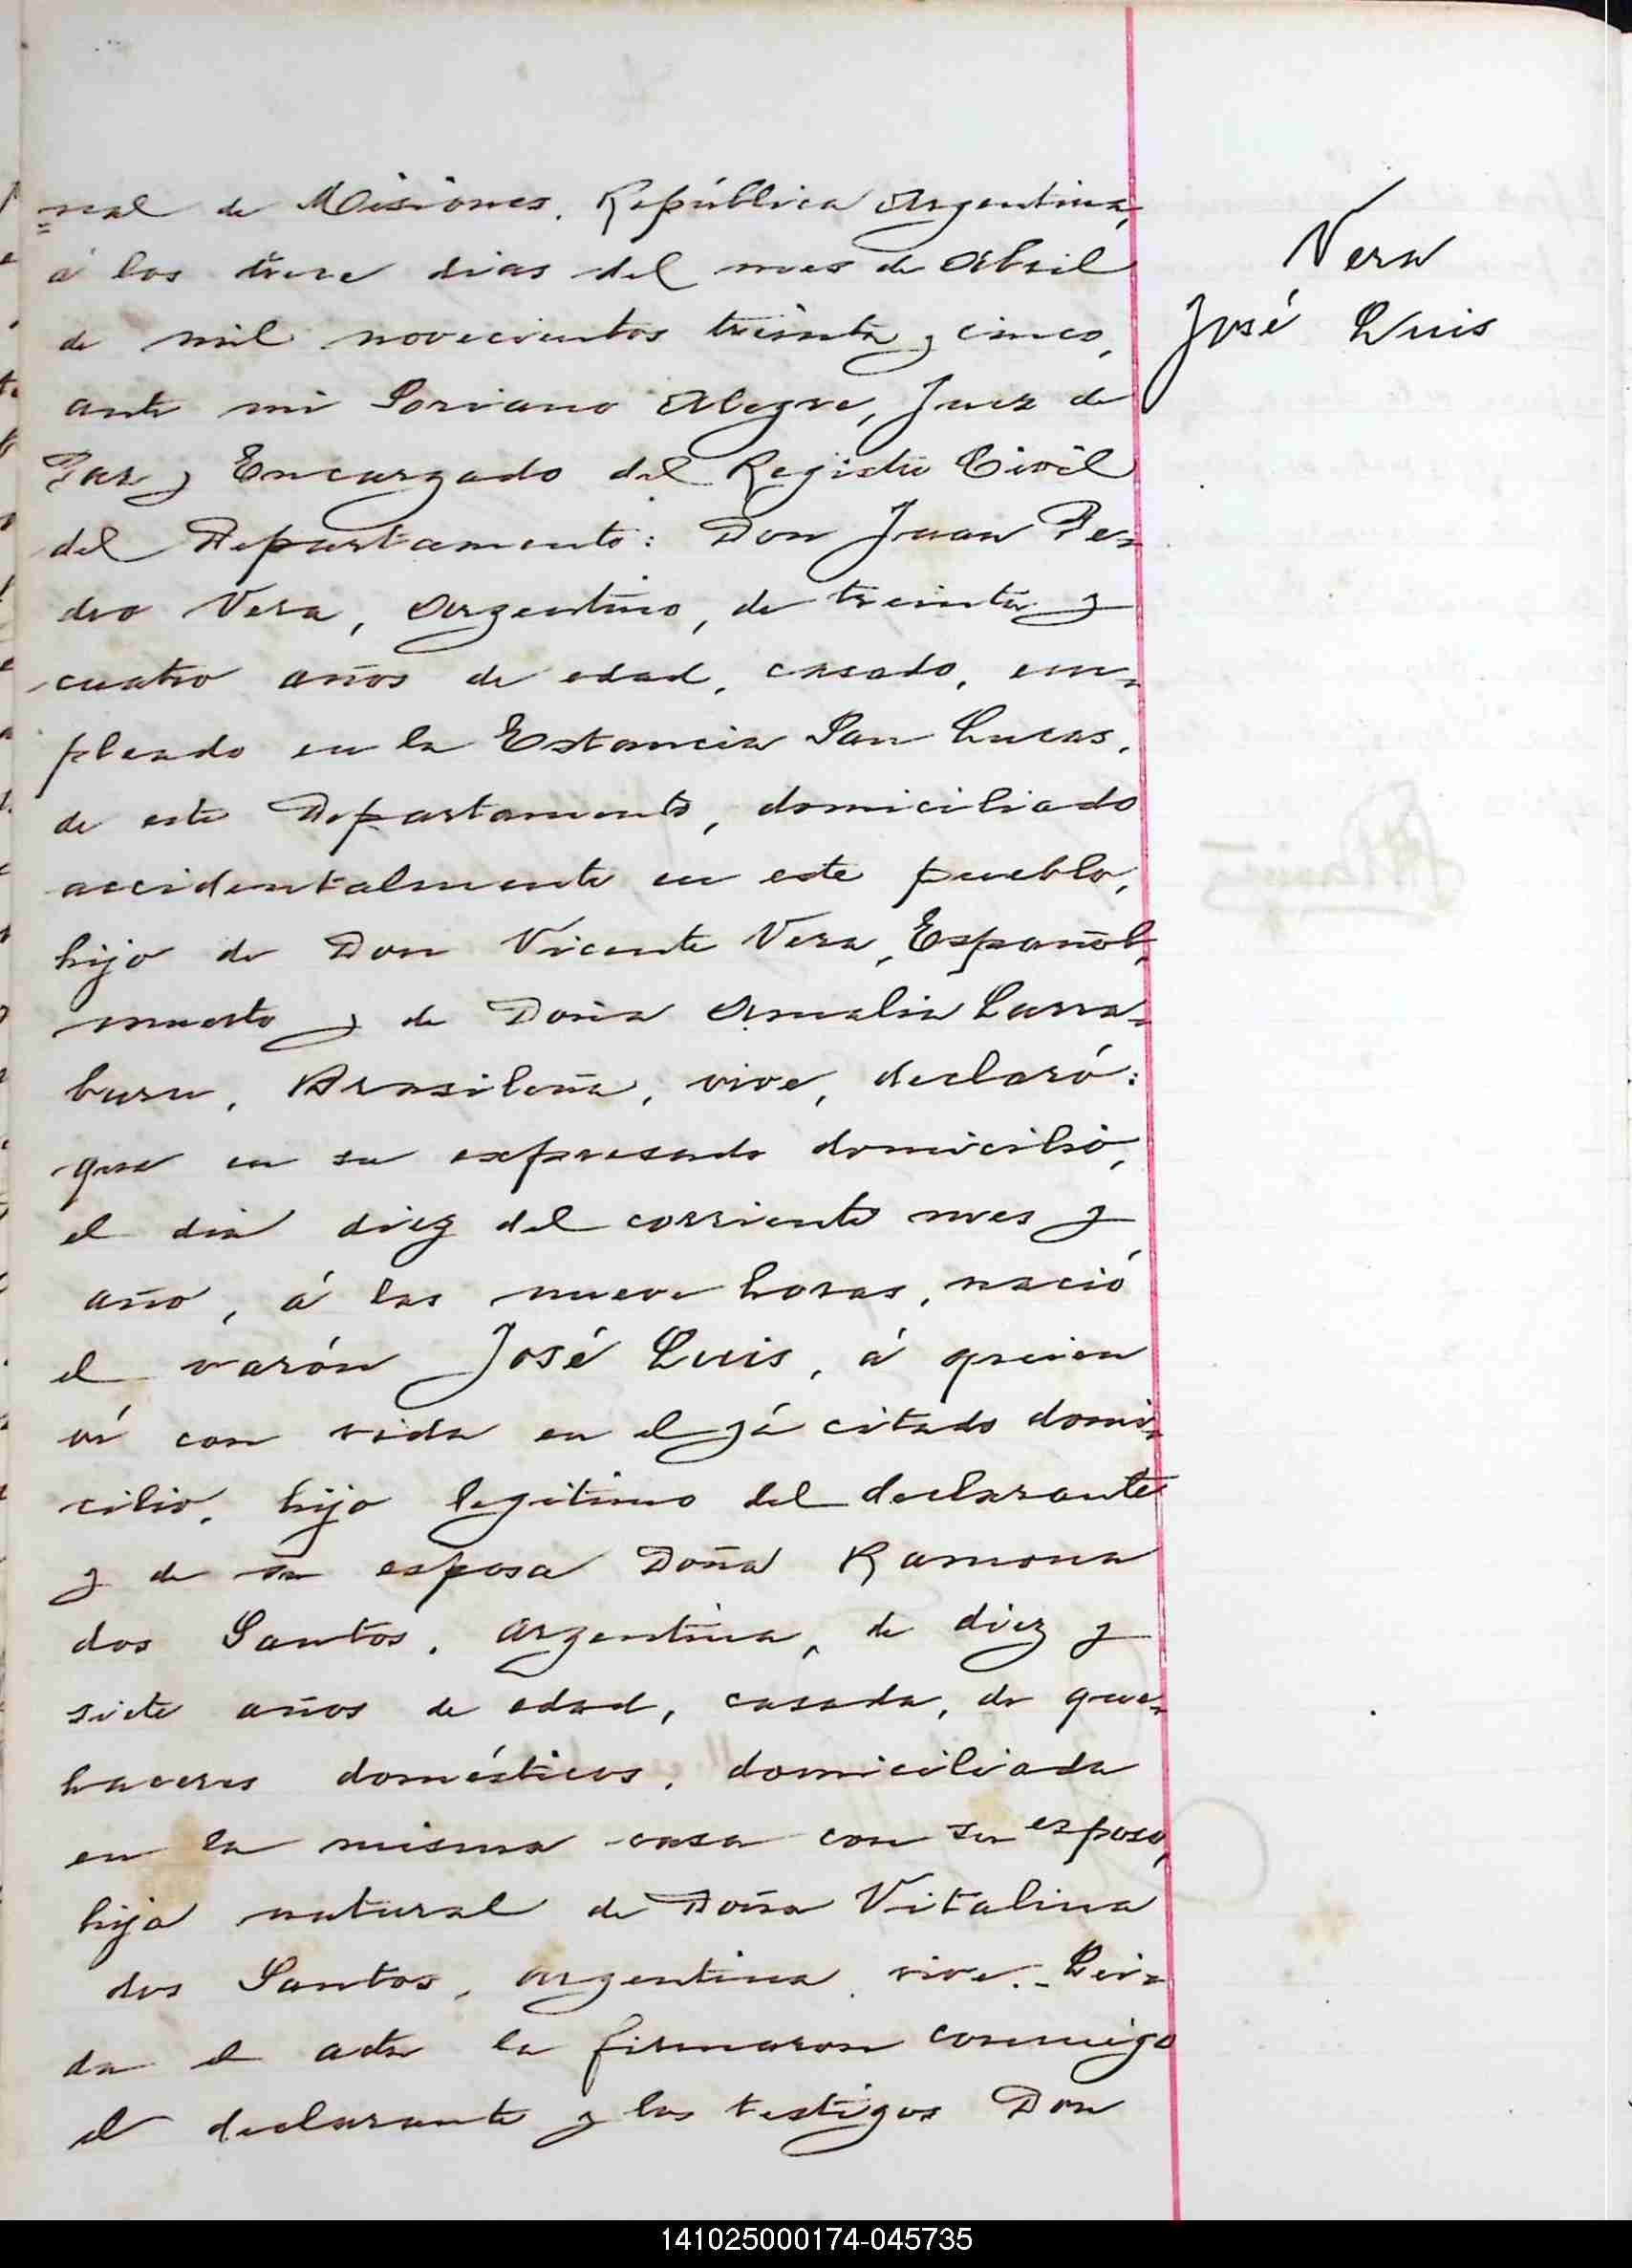 nal de Misiones, República Argentina,
á los trece dias del mes de Abril
de mil novecientos treinta y cinco,
ante mi Soriano Alegre, Juez de
Paz y Encargado del Registro Civil
del Departamento: Don Juan Pe=
dro Vera, Argentino, de treinta y
cuatro años de edad, casado, em=
pleado en la Estancia San Lucas,
de este Departamento, domiciliado
accidentalmente en este pueblo,
hijo de Don Vicente Vera, Español,
muerto y de Doña Amalia Larra=
buru, Brasileña, vive, declaró:
que en su expresado domicilio,
el dia diez del corriente mes y
año, á las nueve horas, nació
el varón José Luis, á quien
ví con vida en el yá citado domi=
cilio, hijo legitimo del declarante
y de su esposa Doña Ramona
dos Santos, argentina, de diez y
siete años de edad, casada, de que=
haceres domésticos, domiciliada
en la misma casa con su esposo,
hija natural de Doña Vitalina
dos Santos, argentina, vive.- Leí=
da el acta la firmaron conmigo
el declarante y los testigos Don
Vera
José Luis
141025000174-045735